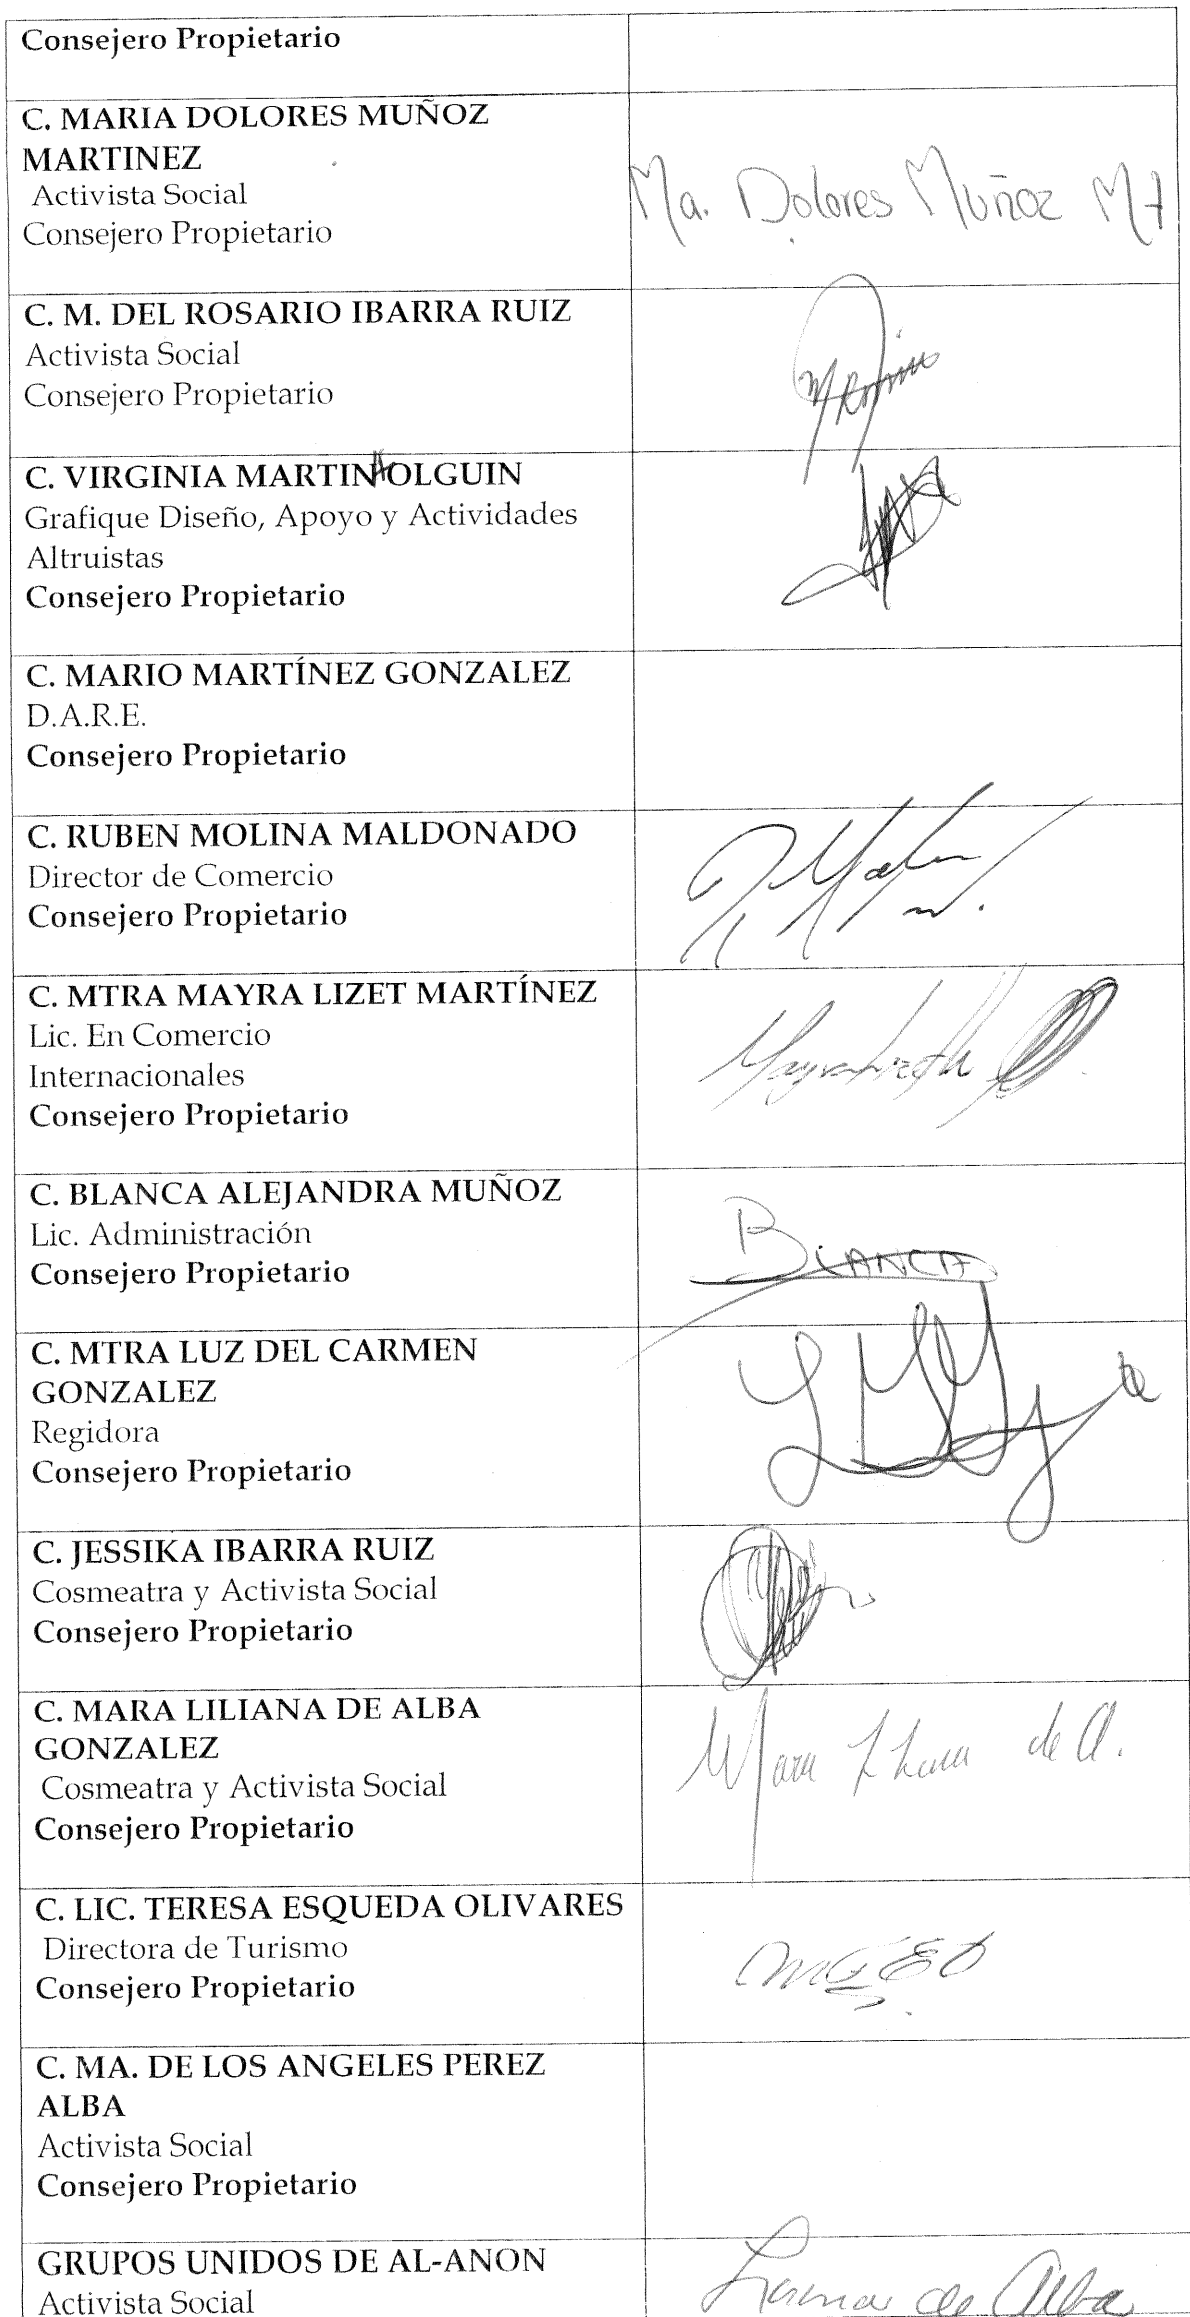 Consejero Propietario
C. MARIA DOLORES MUÑOZ
MARTINEZ
Activista Social
Consejero Propietario
Ma. Dolores Muñoz Mt
C. M. DEL ROSARIO IBARRA RUIZ
Activista Social
Consejero Propietario
C. VIRGINIA MARTIN OLGUIN
Grafique Diseño, Apoyo y Actividades
Altruistas
Consejero Propietario
C. MARIO MARTÍNEZ GONZALEZ
D.A.R.E.
Consejero Propietario
C. RUBEN MOLINA MALDONADO
Director de Comercio
Consejero Propietario
C. MTRA MAYRA LIZET MARTÍNEZ
Lic. En Comercio
Internacionales
Consejero Propietario
C. BLANCA ALEJANDRA MUÑOZ
Lic. Administración
Consejero Propietario
BLANCA
C. MTRA LUZ DEL CARMEN
GONZALEZ
Regidora
Consejero Propietario
C. JESSIKA IBARRA RUIZ
Cosmeatra y Activista Social
Consejero Propietario
C. MARA LILIANA DE ALBA
GONZALEZ
Cosmeatra y Activista Social
Consejero Propietario
Mara Liliana de A.
C. LIC. TERESA ESQUEDA OLIVARES
Directora de Turismo
Consejero Propietario
C. MA. DE LOS ANGELES PEREZ
ALBA
Activista Social
Consejero Propietario
GRUPOS UNIDOS DE AL-ANON
Activista Social
de Alba